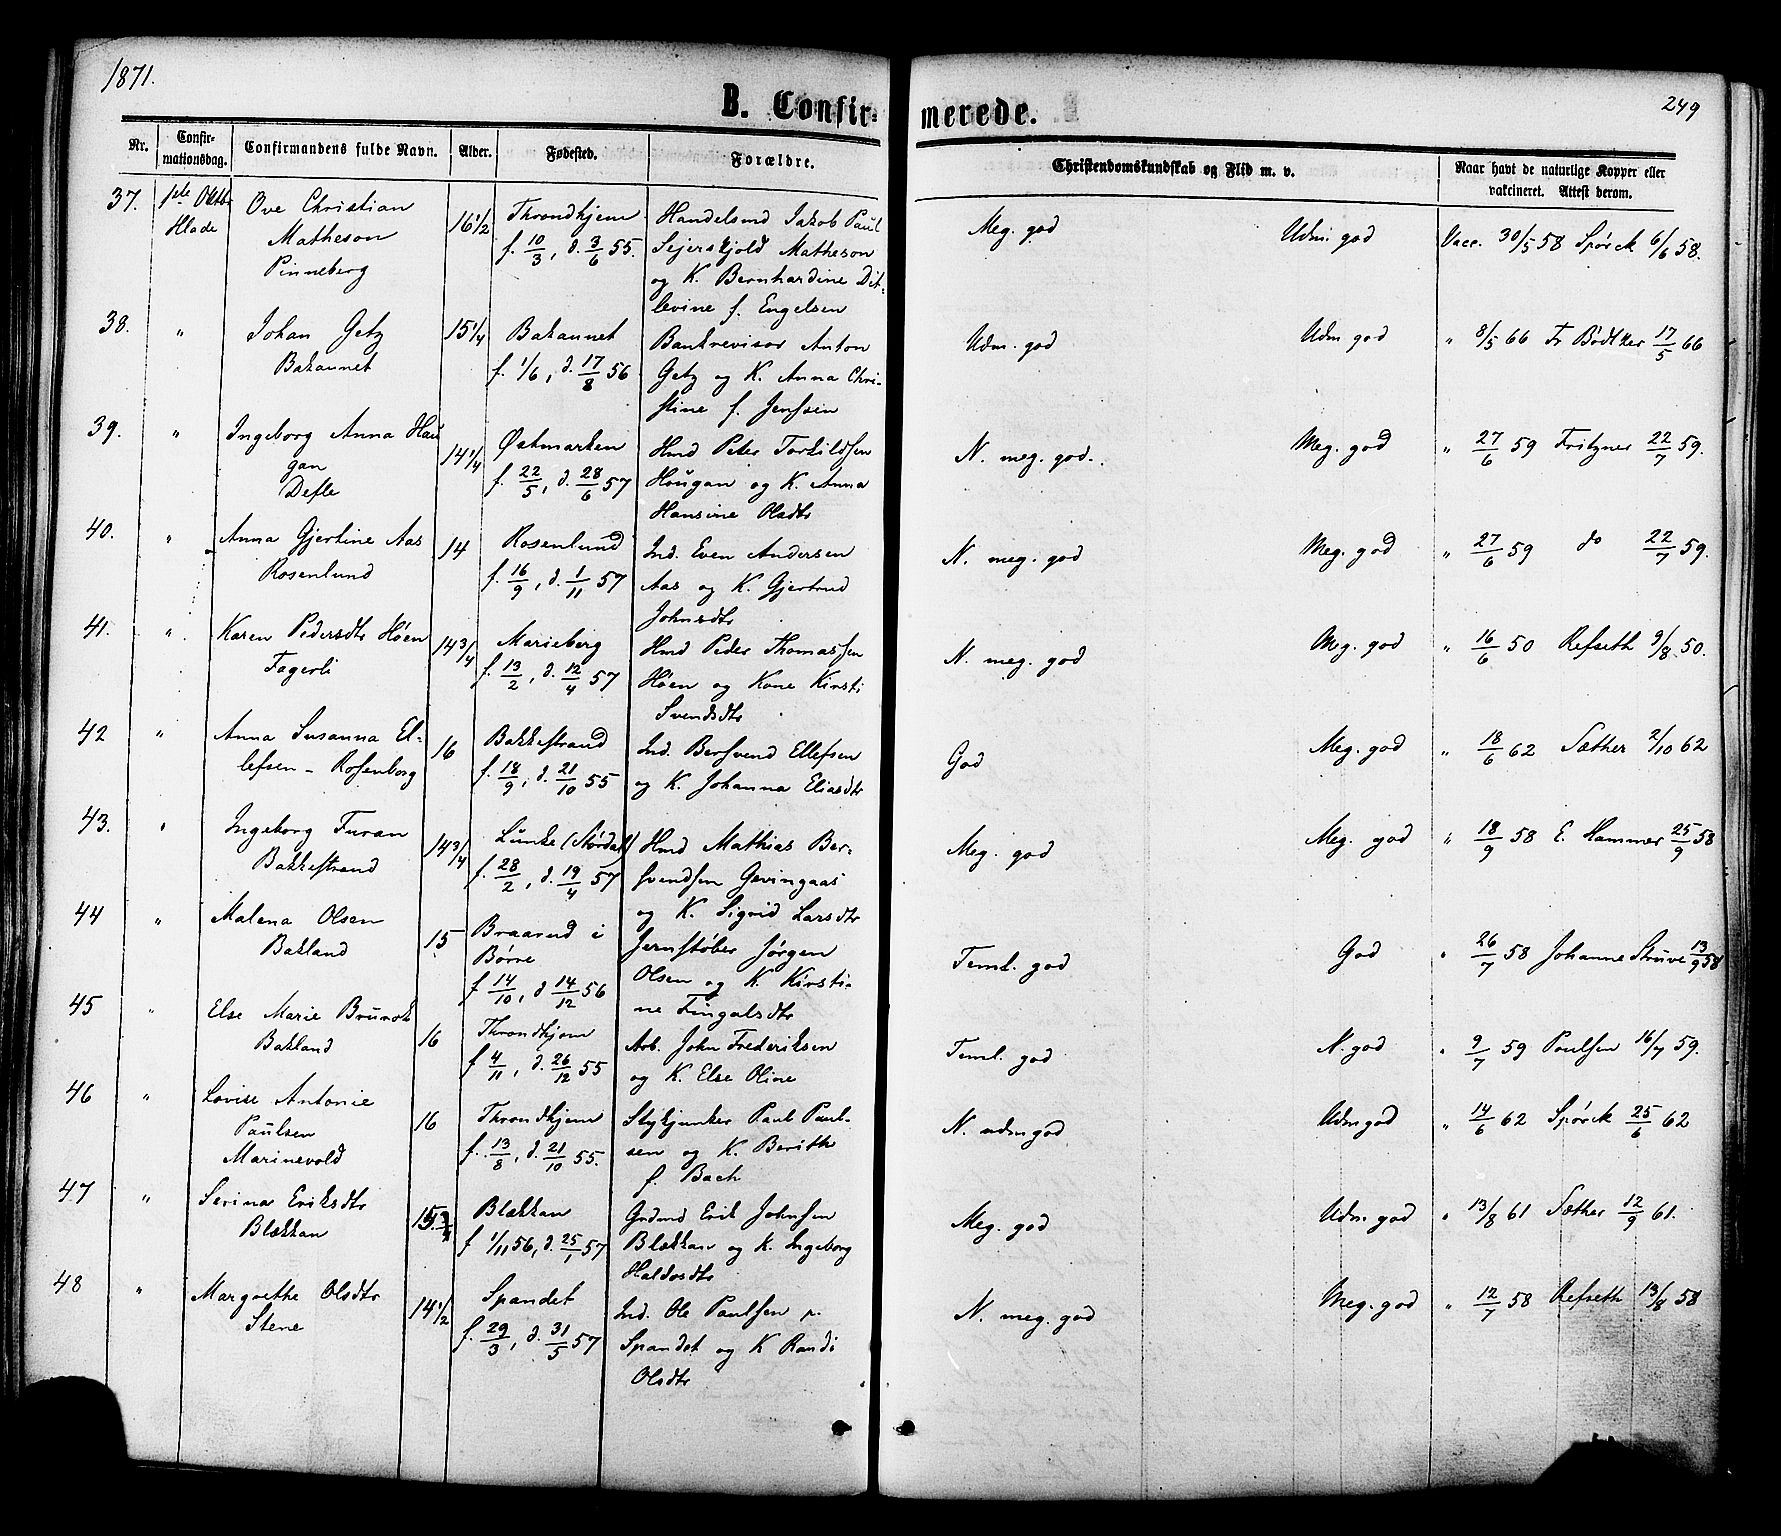 1871.
249
B. Confirmerede.
Nr. Confirmationsdag. Confirmandens fulde Navn. Alder. Fødested. Forældre. Christendomskundskab og Flid m. v. Naar havt de naturlige Kopper eller vakcineret. Attest derom.
37. 1ste Octb. Ove Christian 16 1/2 Throndhjem Handelsmd Jakob Paul Meg. god Udm. god Vacc. 30/5 58 Spørck 6/6 58.
Hlade Matheson f. 10/3, d. 3/6 55. Sejerskjold Matheson
Pinneberg og K. Bernhardine Dit-
levine f. Engelsen
38. " Johan Getz 15 1/4 Bakaunet Bankrevisor Anton Udm. god Udm god " 8/5 66 Fr Bødtker 17/5 66
Bakaunet f. 1/6, d. 17/8 56 Getz og K. Anna Chri-
stine f. Jenssen
39. " Ingeborg Anna Hau 14 1/4 Østmarken Hmd Peter Torkildsen N. meg. god. Meg. god " 27/6 59 Fritzner 22/7 59.
gan f. 22/5, d. 28/6 57 Hougan og K. Anna
Defle Hansine Olsdtr
40. " Anna Gjertine Aas 14 Rosenlund Ind. Even Andersen N. meg. god Meg. god " 27/6 59 do 22/7 59.
Rosenlund f. 16/9, d. 1/11 57 Aas og K. Gjertrud
Johnsdtr
41. " Karen Pedersdtr Høen 14 3/4 Marieberg Hmd Peder Thomassen N. meg. god Meg. god " 16/6 50 Refseth 9/8 50.
Fagerli f. 13/2, d. 12/4 57 Høen og Kone Kirsti
Svendsdtr
42 " Anna Susanna El- 16 Bakkestrand Ind. Bersvend Ellefsen God Meg. god " 18/6 62 Sæther 2/10 62
lefsen - Rosenborg f. 18/9, d. 21/10 55 og K. Johanna Eliasdtr
43. " Ingeborg Furan 14 3/4 Lunke (Størdal) Hmd Mathias Ber- Meg. god Meg. god " 18/9 58 E. Hammer 25/9 58
Bakkestrand f. 28/2, d. 19/4 57 svendsen Gevingaas
og K. Sigrid Larsdtr
44 " Malena Olsen 15 Braarud i Jernstøber Jørgen Teml. god God " 26/7 58 Johanne Struve 13/9 58
Bakland Børre Olsen og K. Kirsti-
f 14/10, d 14/12 56 ne Fingalsdtr
45 " Else Marie Brunok 16 Throndhjem Arb. John Frederiksen Teml. god N. god " 9/7 59 Poulsen 16/7 59.
Bakland f 4/11, d. 26/12 55 og K. Else Oline
46 " Lovise Antonie 16 Throndhjem Stykjunker Paul Paul- N. udm god Udm god " 14/6 62 Spørck 25/6 62
Paulsen f. 13/8, d. 21/10 55. sen og K. Berith
Marinevold f. Bach
47 " Serina Eriksdtr 15 Blækkan Grdmd Erik Johnsen Meg. god Udm. god " 13/8 61 Sæther 12/9 61.
Blækkan f 1/11 56, d. 25/1 57 Blækkan og K. Ingeborg
Haldosdtr
48 " Margrethe Olsdtr 14 1/2 Spandet Ind. Ole Paulsen p. N. meg. god Meg. god " 12/7 58 Refseth 13/8 58
Stene f. 29/3, d. 31/5 57 Spandet og K Randi
Olsdtr